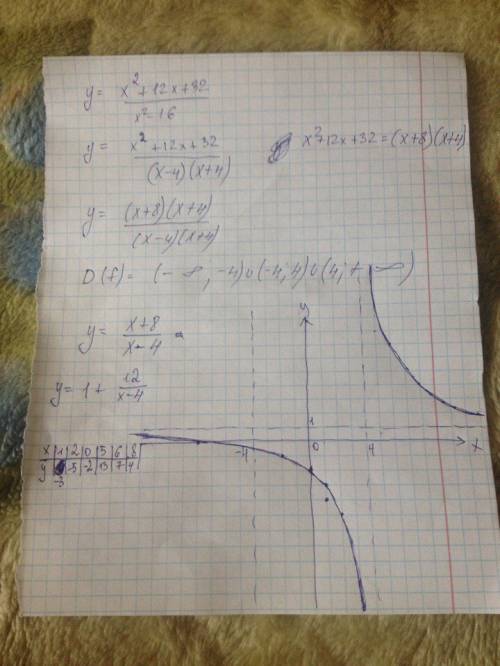 y = x² + 12x + 32 / x² - 16
y = x² + 12x + 32 / (x-4)(x+4)
x² + 12x + 32 = (x+8)(x+4)
y = (x+8)(x+4) / (x-4)(x+4)
D(f) = (-∞; -4)∪(-4; 4)∪(4; +∞)
y = x+8 / x-4
y = 1 + 12 / x-4
x | 1 | 2 | 0 | 5 | 6 | 8
y | -3 | -5 | -2 | 13 | 7 | 4
y
1
-4 0 4 x